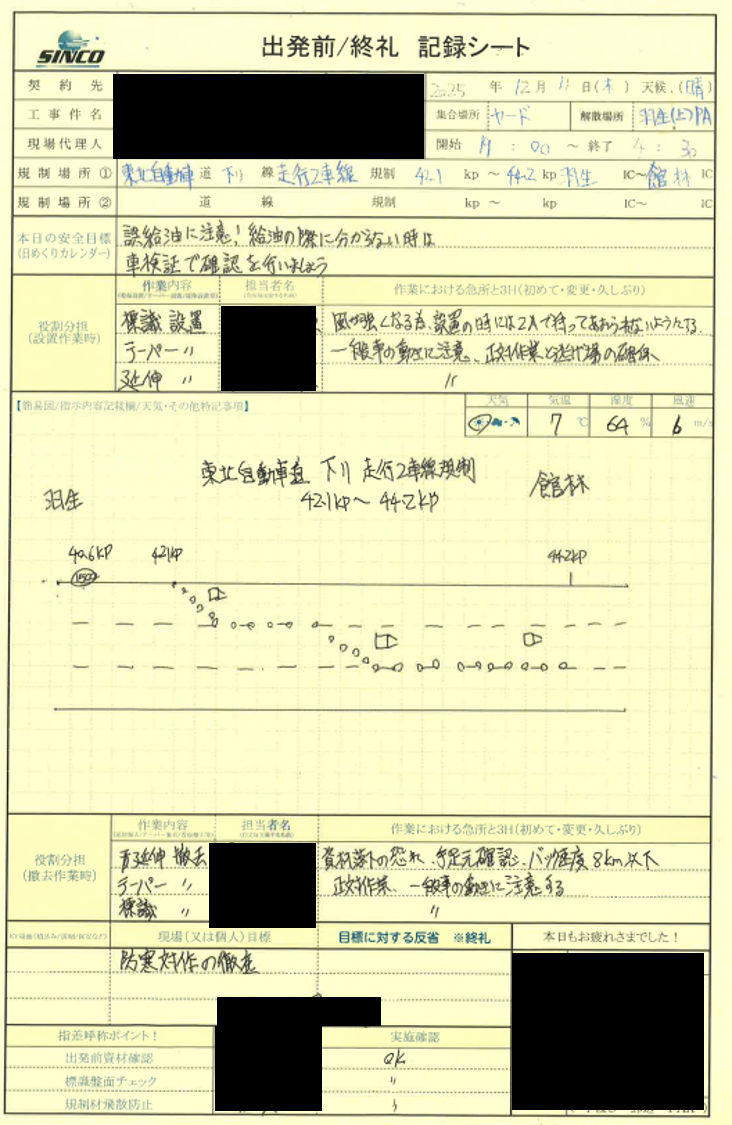 SINCO
出発前/終礼 記録シート
契約先
2025 年 12月 11日(木) 天候(晴)
工事件名
集合場所 ヤード 解散場所 羽生(上)PA
現場代理人
開始 19 : 00 ~ 終了 4 : 30
規制場所① 東北自動車道 下り 線 走行2車線 規制 42.1 kp ~ 44.2 kp 羽生 IC~ 館林 IC
規制場所② 道 線 規制 kp ~ kp IC~ IC
本日の安全目標
(日めくりカレンダー)
誤給油に注意! 給油の際に分からない時は
車検証で確認を行いましょう
役割分担
(設置作業時)
作業内容 担当者名 作業における急所と3H(初めて・変更・久しぶり)
標識 設置 風が強くなる為、設置の時には2人で持ってあおられないようにする
テーパー 〃 一般車の動きに注意、正対作業と逃げ場の確保
延伸 〃 〃
【簡易図/指示内容記載欄/天気・その他特記事項】
天気 気温 湿度 風速
7 ℃ 64 % 6 m/s
東北自動車道 下り 走行2車線規制
42.1kp~44.2kp
羽生 館林
40.6kp 42.1kp 44.2kp
1500
役割分担
(撤去作業時)
作業内容 担当者名 作業における急所と3H(初めて・変更・久しぶり)
延伸 撤去 資材落下の恐れ、足元確認、バック速度8km以下
テーパー 〃 正対作業、一般車の動きに注意する
標識 〃 〃
現場(又は個人)目標 目標に対する反省 ※終礼 本日もお疲れさまでした!
防寒対策の徹底
指差呼称ポイント! 実施確認
出発前資材確認 OK
標識盤面チェック 〃
規制材飛散防止 〃